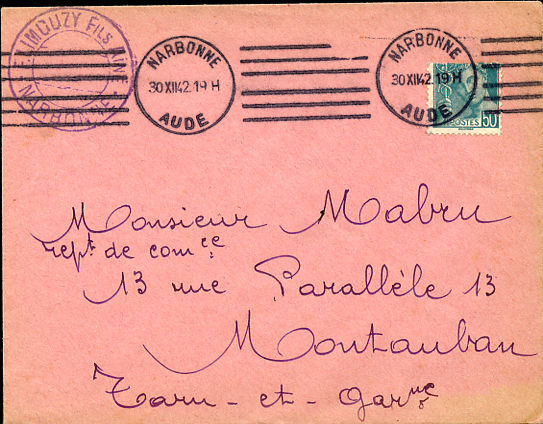 E. LIMOUZY FILS AINÉ
NARBONNE
NARBONNE
30 XII 42. 19 H
AUDE
NARBONNE
30 XII 42. 19 H
AUDE
POSTES 50
Monsieur Mabru
rept. de comce
13 rue Parallèle 13
Montauban
Tarn-et-Garne